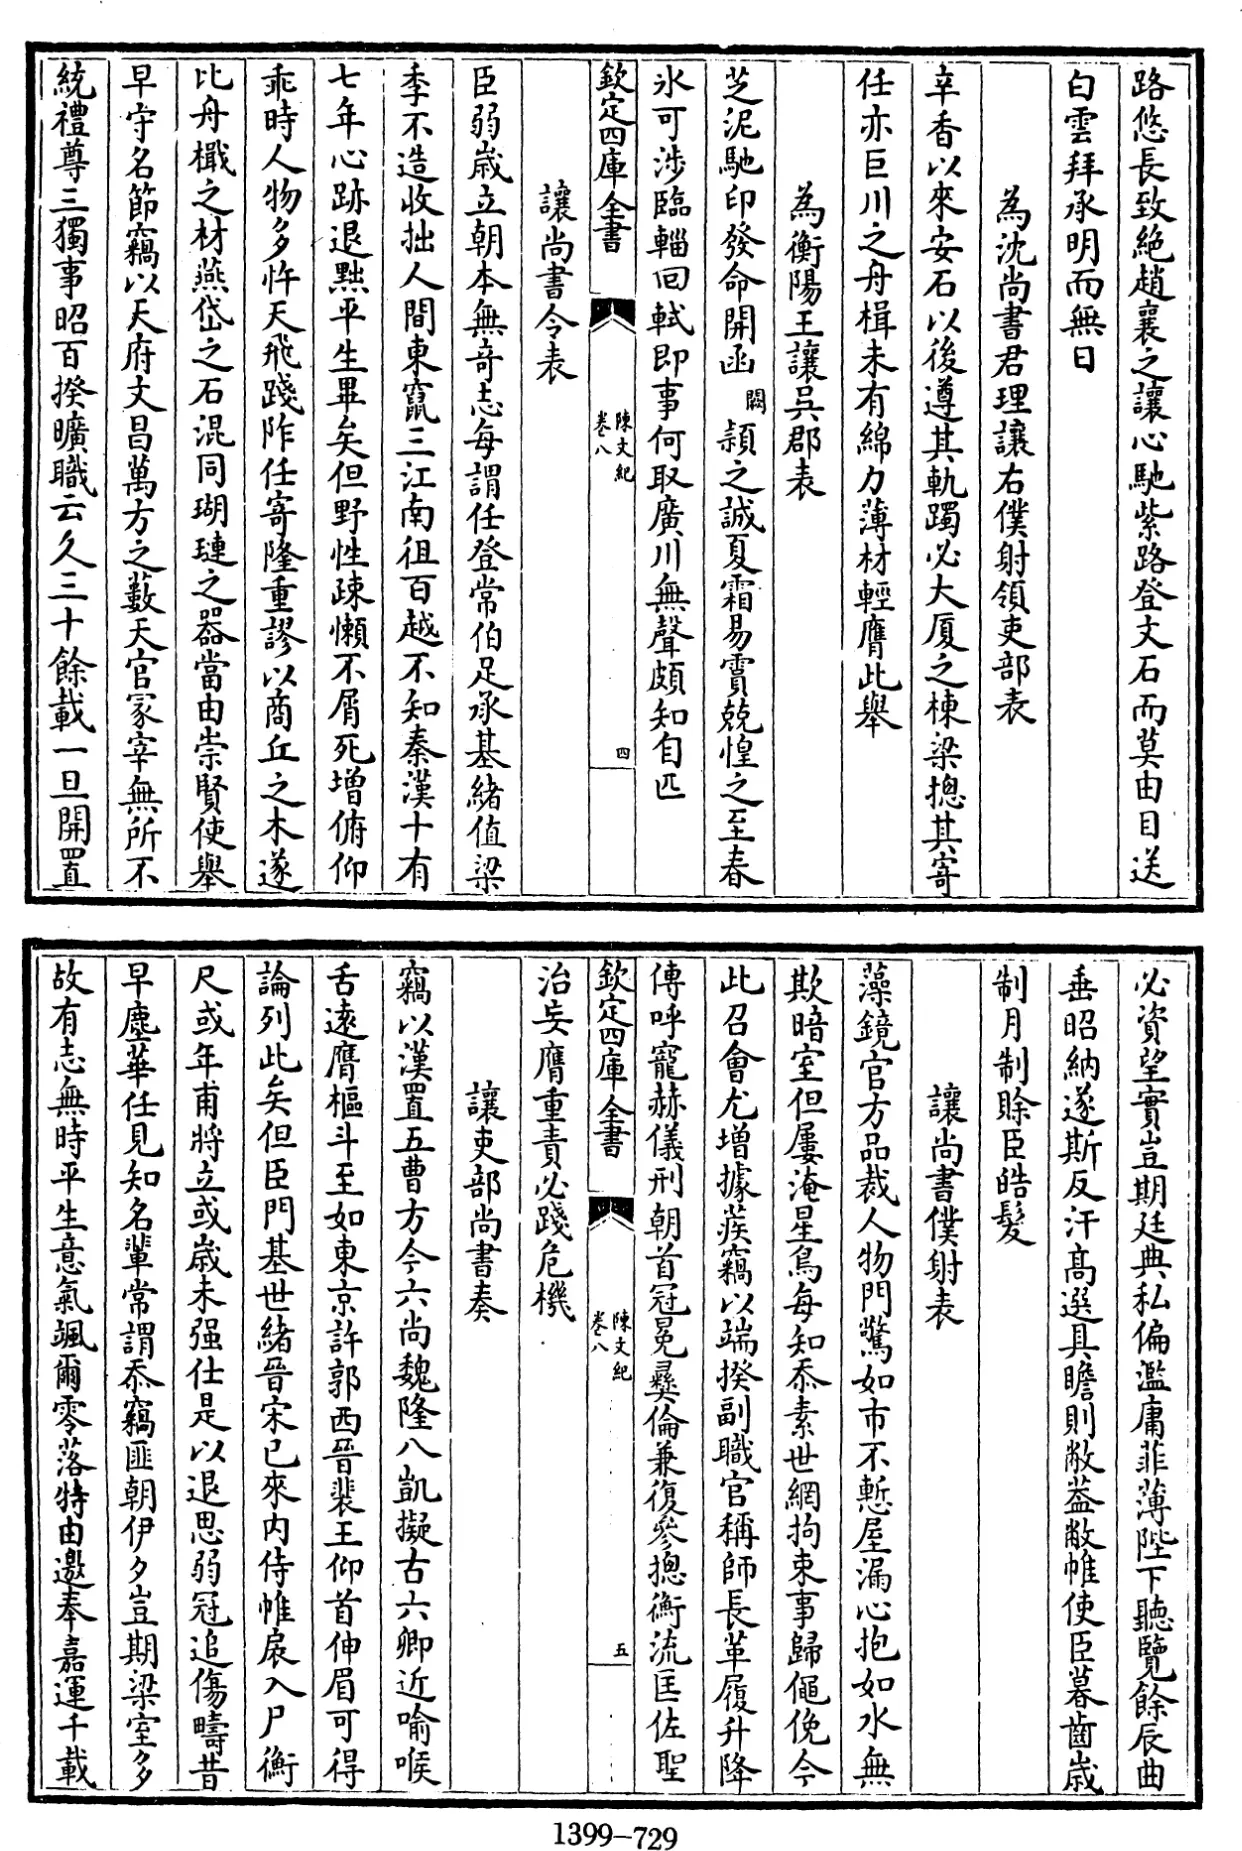 路悠長致絶趙襄之讓心馳紫路登文石而莫由目送
白雲拜承明而無日
為沈尚書君理讓右僕射領吏部表
辛香以來安石以後遵其軌躅必大厦之棟梁揔其寄
任亦巨川之舟楫未有綿力薄材輕膺此舉
為衡陽王讓吳郡表
芝泥馳印發命開函闕頴之誠夏霜易賈兢惶之至春
氷可涉臨輜回軾即事何取廣川無聲頗知自匹
欽定四庫全書
陳文紀
卷八
四
讓尚書令表
臣弱歳立朝本無奇志每謂任登常伯足承基緒值梁
季不造收拙人間東竄三江南徂百越不知秦漢十有
七年心跡退黜平生畢矣但野性疎懶不屑死增俯仰
乖時人物多忤天飛踐阼任寄隆重謬以商丘之木遂
比舟檝之材燕岱之石混同瑚璉之器當由崇賢使舉
早守名節竊以天府文昌萬方之藪天官冢宰無所不
統禮尊三獨事昭百揆曠職云久三十餘載一旦開置
必資望實豈期廷典私偏濫庸菲薄陛下聽覽餘辰曲
垂昭納遂斯反汗髙選具瞻則敝葢敝帷使臣暮齒歳
制月制賖臣皓髮
讓尚書僕射表
藻鏡官方品裁人物門驚如市不慙屋漏心抱如水無
欺暗室但屢淹星鳥每知忝素世網拘束事歸僶俛今
此召會尤增據蒺竊以端揆副職官稱師長革履升降
傳呼寵赫儀刑朝首冠冕彝倫兼復參揔衡流匡佐聖
欽定四庫全書
陳文紀
卷八
五
治妄膺重責必踐危機
讓吏部尚書奏
竊以漢置五曹方今六尚魏隆八凱擬古六卿近喻喉
舌逺膺樞斗至如東京許郭西晉裴王仰首伸眉可得
論列此矣但臣門基世緒晉宋已來内侍帷扆入尸衡
尺或年甫將立或歳未强仕是以退思弱冠追傷疇昔
早塵華任見知名輩常謂忝竊匪朝伊夕豈期梁室多
故有志無時平生意氣颯爾零落特由邀奉嘉運千載
1399-729